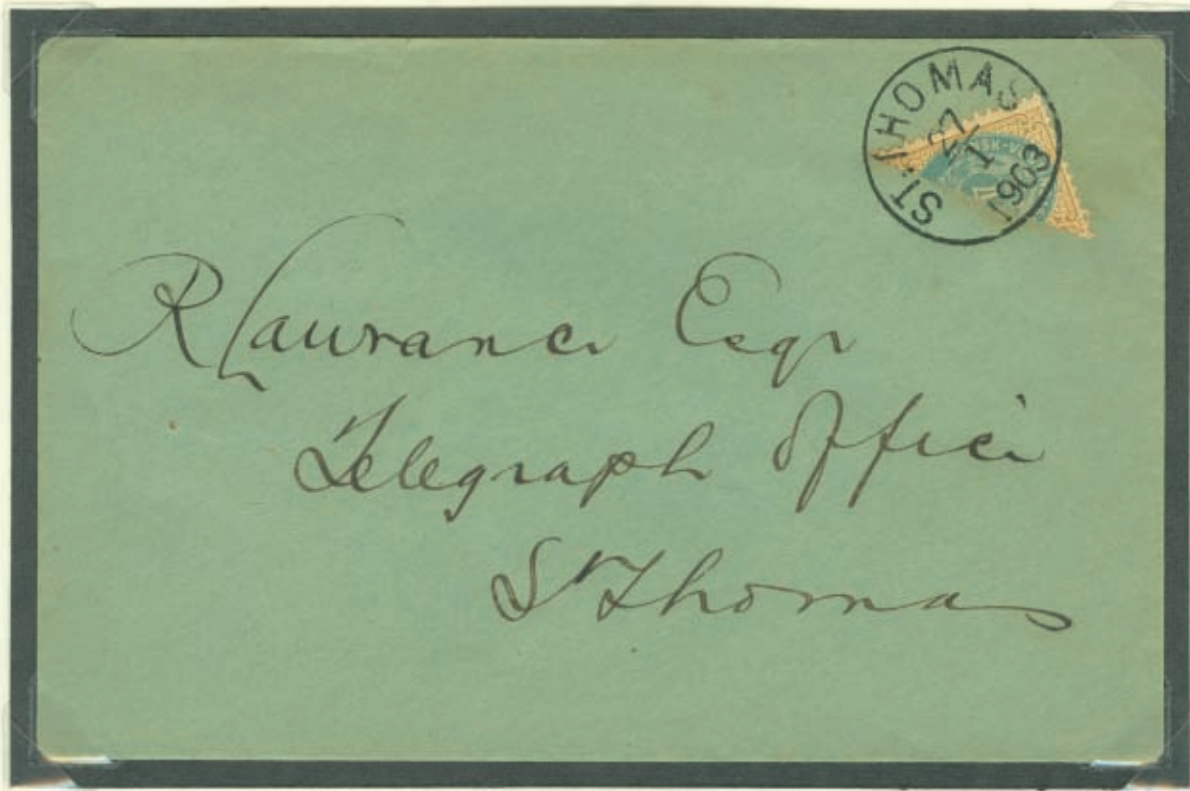 ST. THOMAS
27
1
1903
R Lawrance Esqr
Telegraph Office
St Thomas